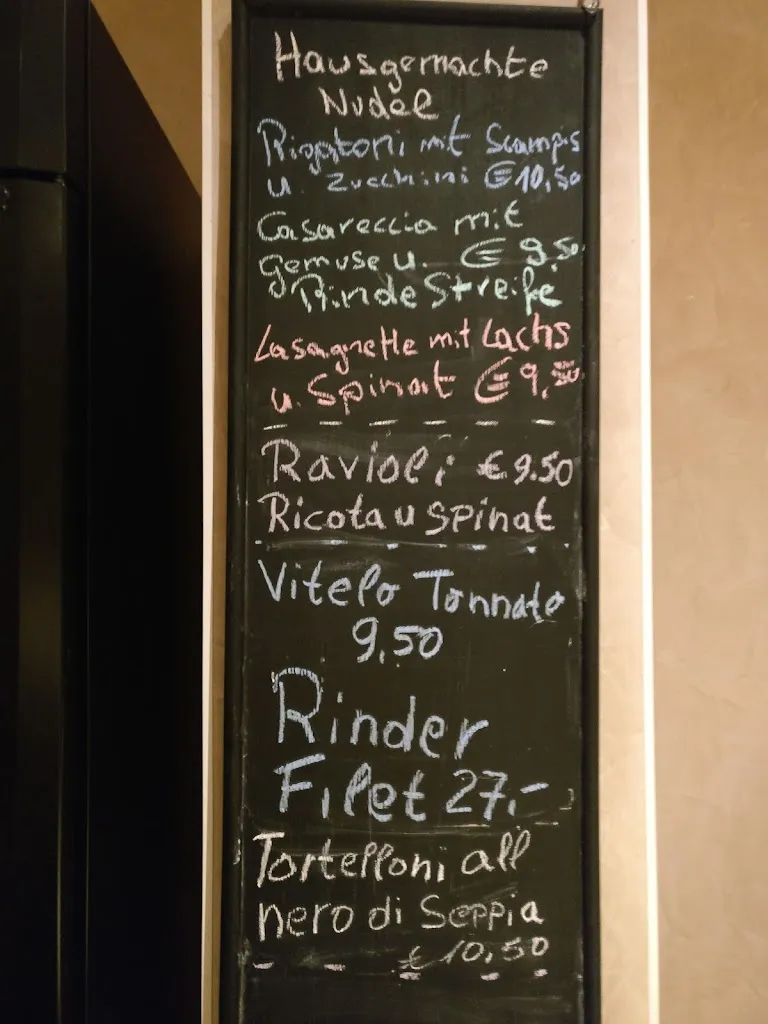 Hausgemachte
Nudel
Rigatoni mit Scampis
u. Zucchini €10,50
Casareccia mit
gemuse u. € 9,50
Rinde Streife
Lasagnette mit Lachs
u. Spinat € 9,50
Ravioli € 9.50
Ricota u spinat
Vitelo Tonnato
9,50
Rinder
Filet 27,-
Tortelloni all
nero di Seppia
€ 10,50